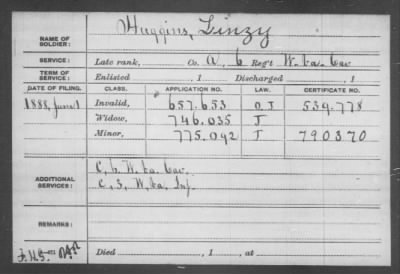 NAME OF SOLDIER: Huggins, Linzy
SERVICE: Late rank, Co. A, 6 Reg't W. Va. Cav
TERM OF SERVICE: Enlisted , 1 Discharged , 1
DATE OF FILING. CLASS. APPLICATION NO. LAW. CERTIFICATE NO.
1888, June 1 Invalid, 657.653 O J 534.778
Widow, 746.035 J
Minor, 775.042 J 790370
ADDITIONAL SERVICES: C, 6 W. Va. Cav.
C, 3, W. Va. Inf
REMARKS:
Died , 1 , at